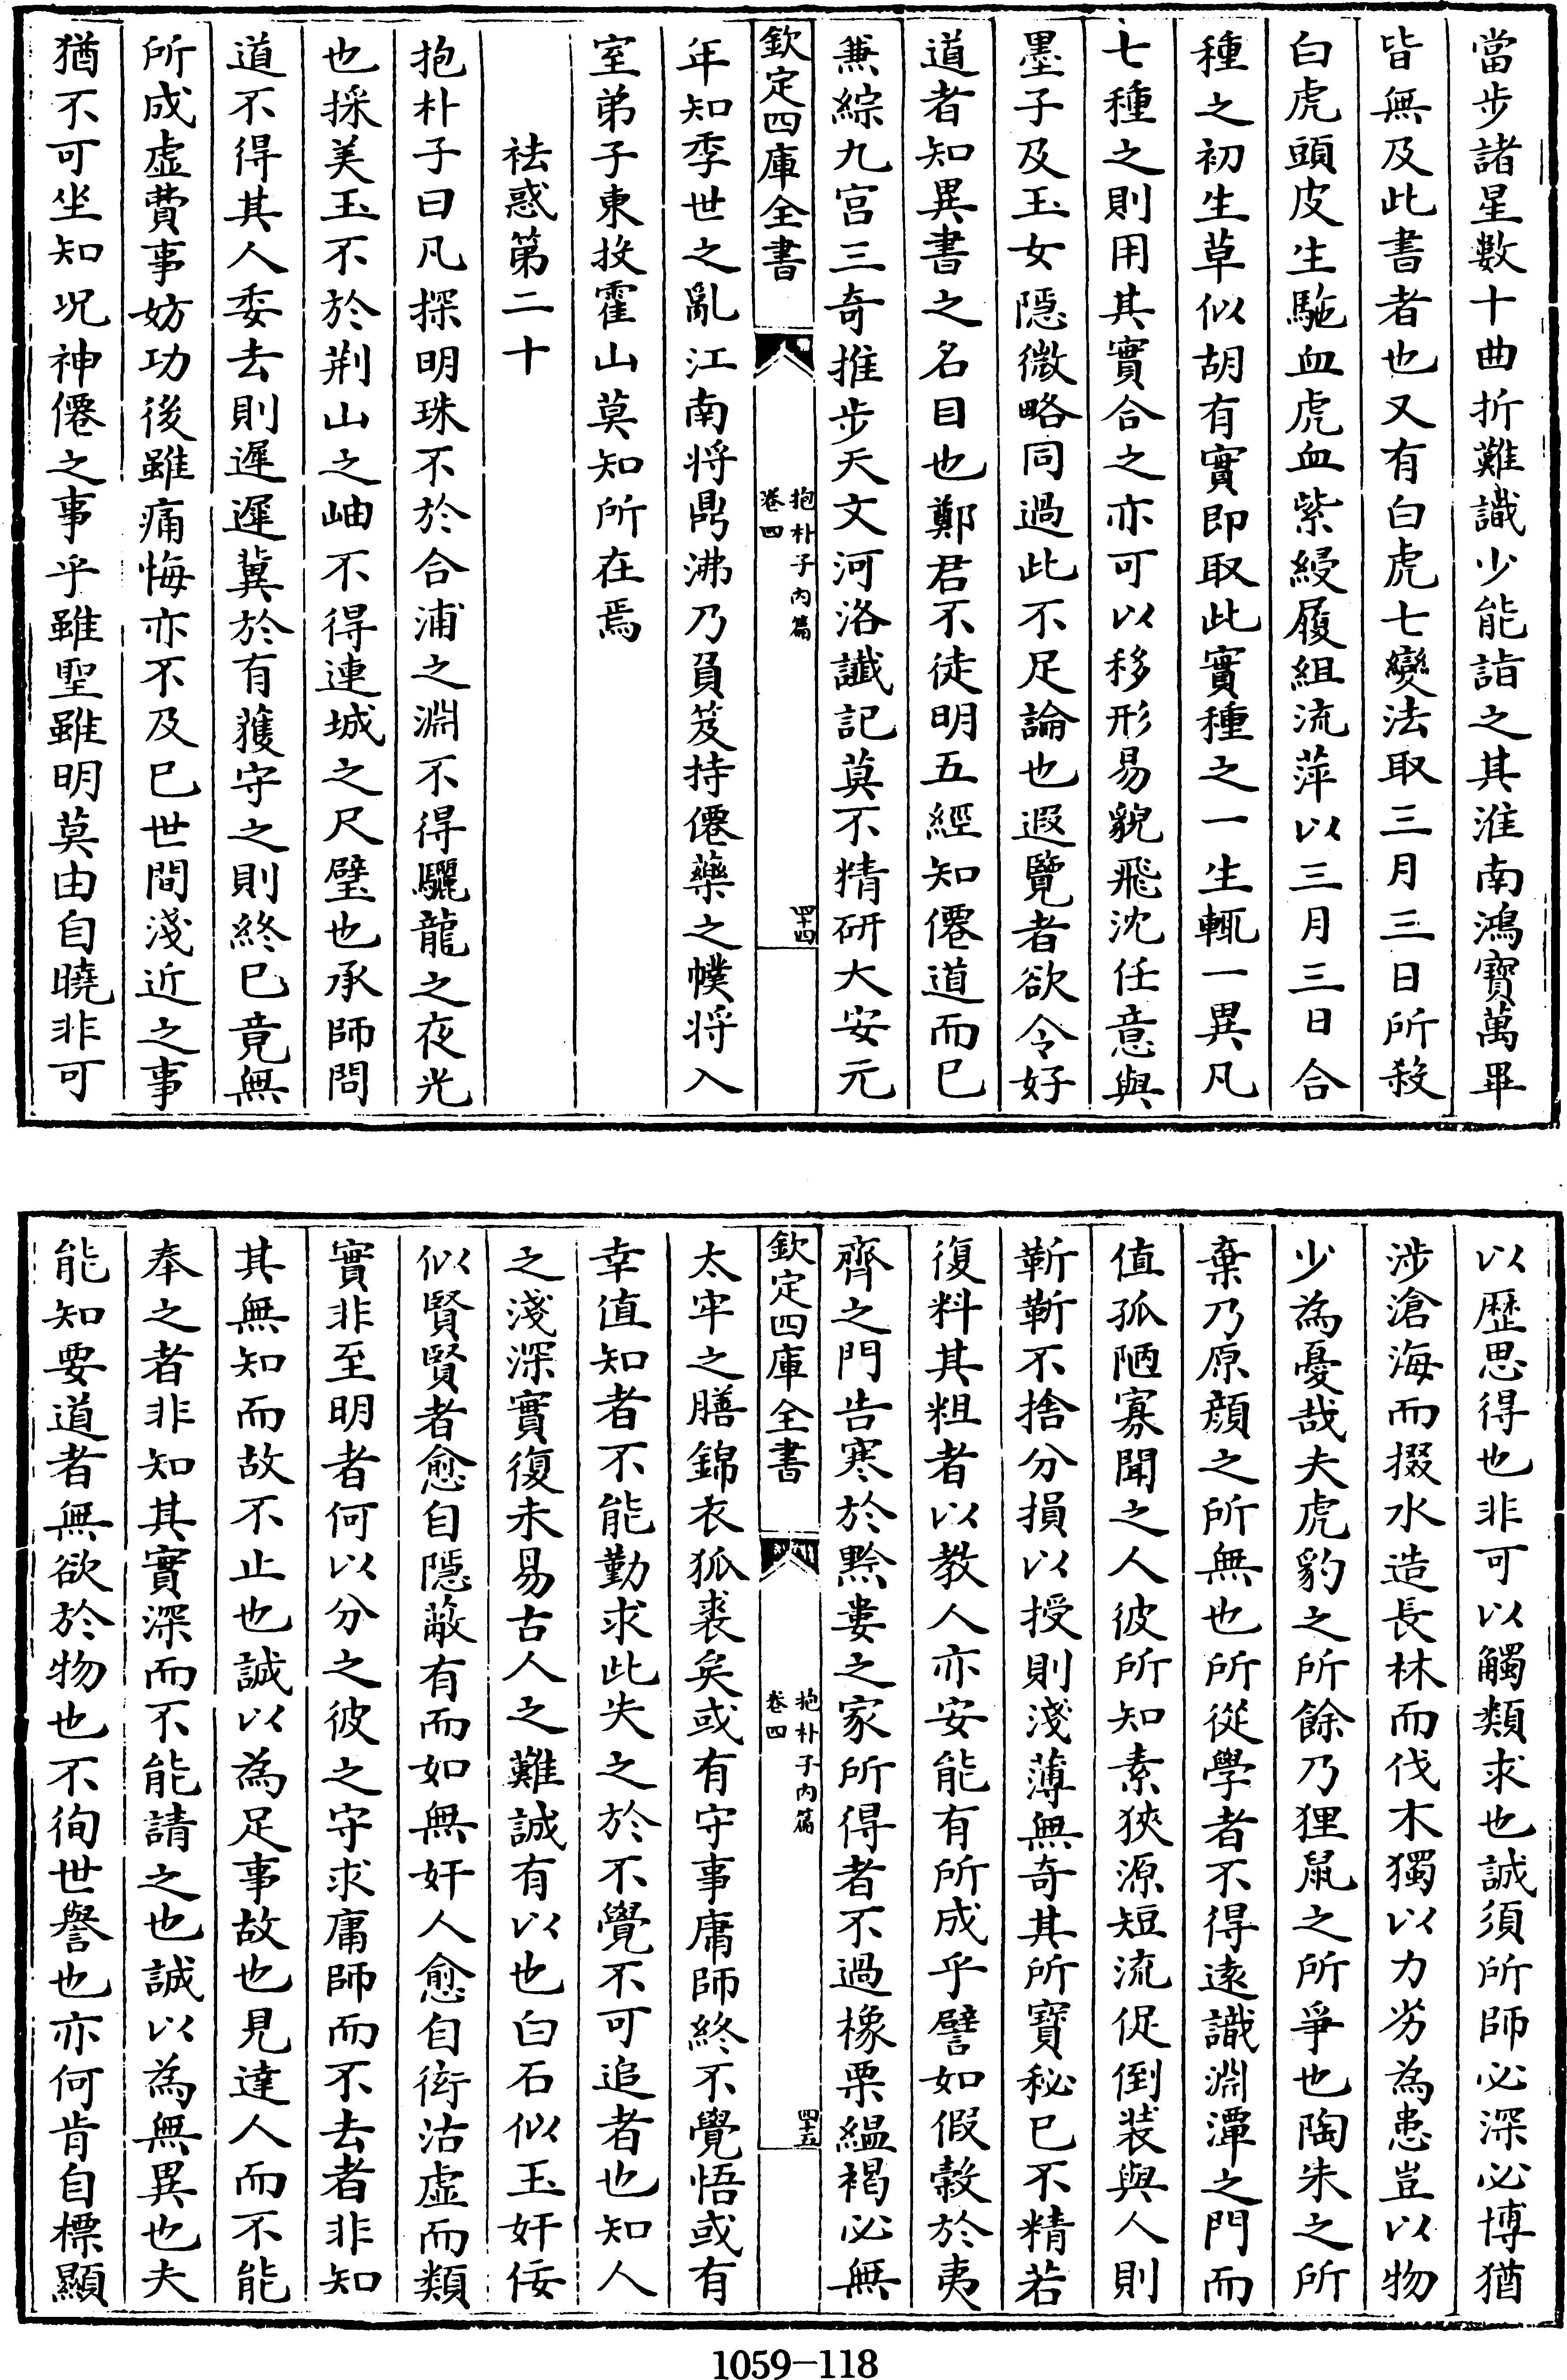 當步諸星數十曲折難識少能詣之其淮南鴻寳萬畢
皆無及此書者也又有白虎七變法取三月三日所殺
白虎頭皮生駞血虎血紫綬履組流萍以三月三日合
種之初生草似胡有實即取此實種之一生輒一異凡
七種之則用其實合之亦可以移形易貌飛沈任意與
墨子及玉女隠微略同過此不足論也遐覽者欲令好
道者知異書之名目也鄭君不徒明五經知僊道而已
兼綜九宫三奇推步天文河洛讖記莫不精研大安元
欽定四庫全書
抱朴子内篇
卷四
四十四
年知季世之亂江南将鼎沸乃負笈持僊藥之幞将入
室弟子東投霍山莫知所在焉
袪惑第二十
抱朴子曰凡探明珠不於合浦之淵不得驪龍之夜光
也採美玉不於荆山之岫不得連城之尺璧也承師問
道不得其人委去則遲遲冀於有獲守之則終已竟無
所成虚費事妨功後雖痛悔亦不及已世間淺近之事
猶不可坐知况神僊之事乎雖聖雖明莫由自曉非可
以歴思得也非可以觸類求也誠須所師必深必博猶
涉滄海而掇水造長林而伐木獨以力劣為患豈以物
少為憂哉夫虎豹之所餘乃狸鼠之所爭也陶朱之所
棄乃原顔之所無也所從學者不得遠識淵潭之門而
值孤陋寡聞之人彼所知素狹源短流促倒装與人則
靳靳不捨分損以授則淺薄無奇其所寳秘已不精若
復料其粗者以教人亦安能有所成乎譬如假榖於夷
齊之門告寒於黔婁之家所得者不過橡栗緼褐必無
欽定四庫全書
抱朴子内篇
卷四
四十五
太牢之膳錦衣狐裘矣或有守事庸師終不覺悟或有
幸值知者不能勤求此失之於不覺不可追者也知人
之淺深實復未易古人之難誠有以也白石似玉奸佞
似賢賢者愈自隠蔽有而如無奸人愈自衒沽虚而類
實非至明者何以分之彼之守求庸師而不去者非知
其無知而故不止也誠以為足事故也見達人而不能
奉之者非知其實深而不能請之也誠以為無異也夫
能知要道者無欲於物也不徇世譽也亦何肯自標顯
1059-118